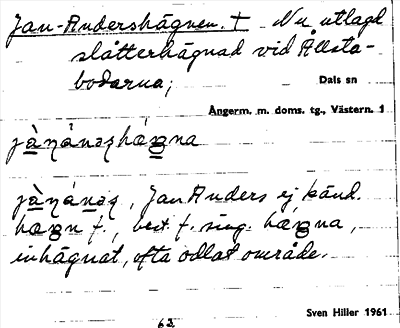 Jan-Andershägnen. † Nu utlagd
slåtterhägnad vid Ållsta-
bodarna;
Dals sn
Ångerm. m. doms. tg., Västern. 1
, Jan Anders ej känd.
f., best. f. sing.
inhägnat, ofta odlat område.
Sven Hiller 1961
62